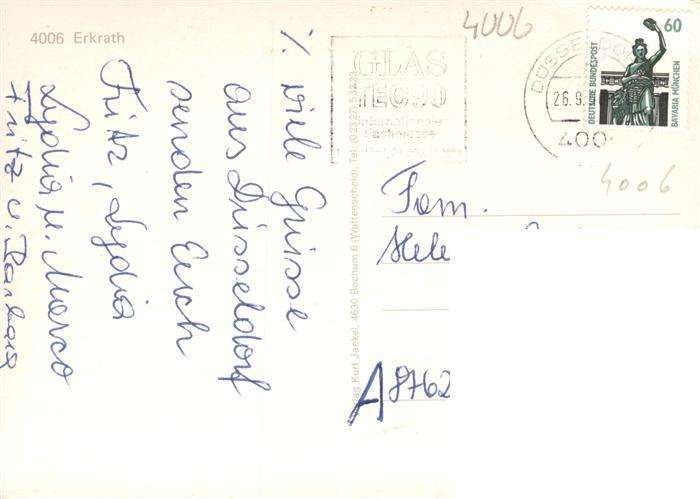 4006 Erkrath
4006
GLAS
TEC
Internationale
Fachmesse
DÜSSELDO
26.9.
400
60
DEUTSCHE BUNDESPOST
BAVARIA MÜNCHEN
4006
viele Grüsse
aus Düsseldorf
senden Euch
Fritz, Lydia
Lydia u. Marco
Fritz u. Barbara
Kurt Jaekel, 4630 Bochum 6 (Wattenscheid), Tel. (02327)
Fam.
Hele
A 8762